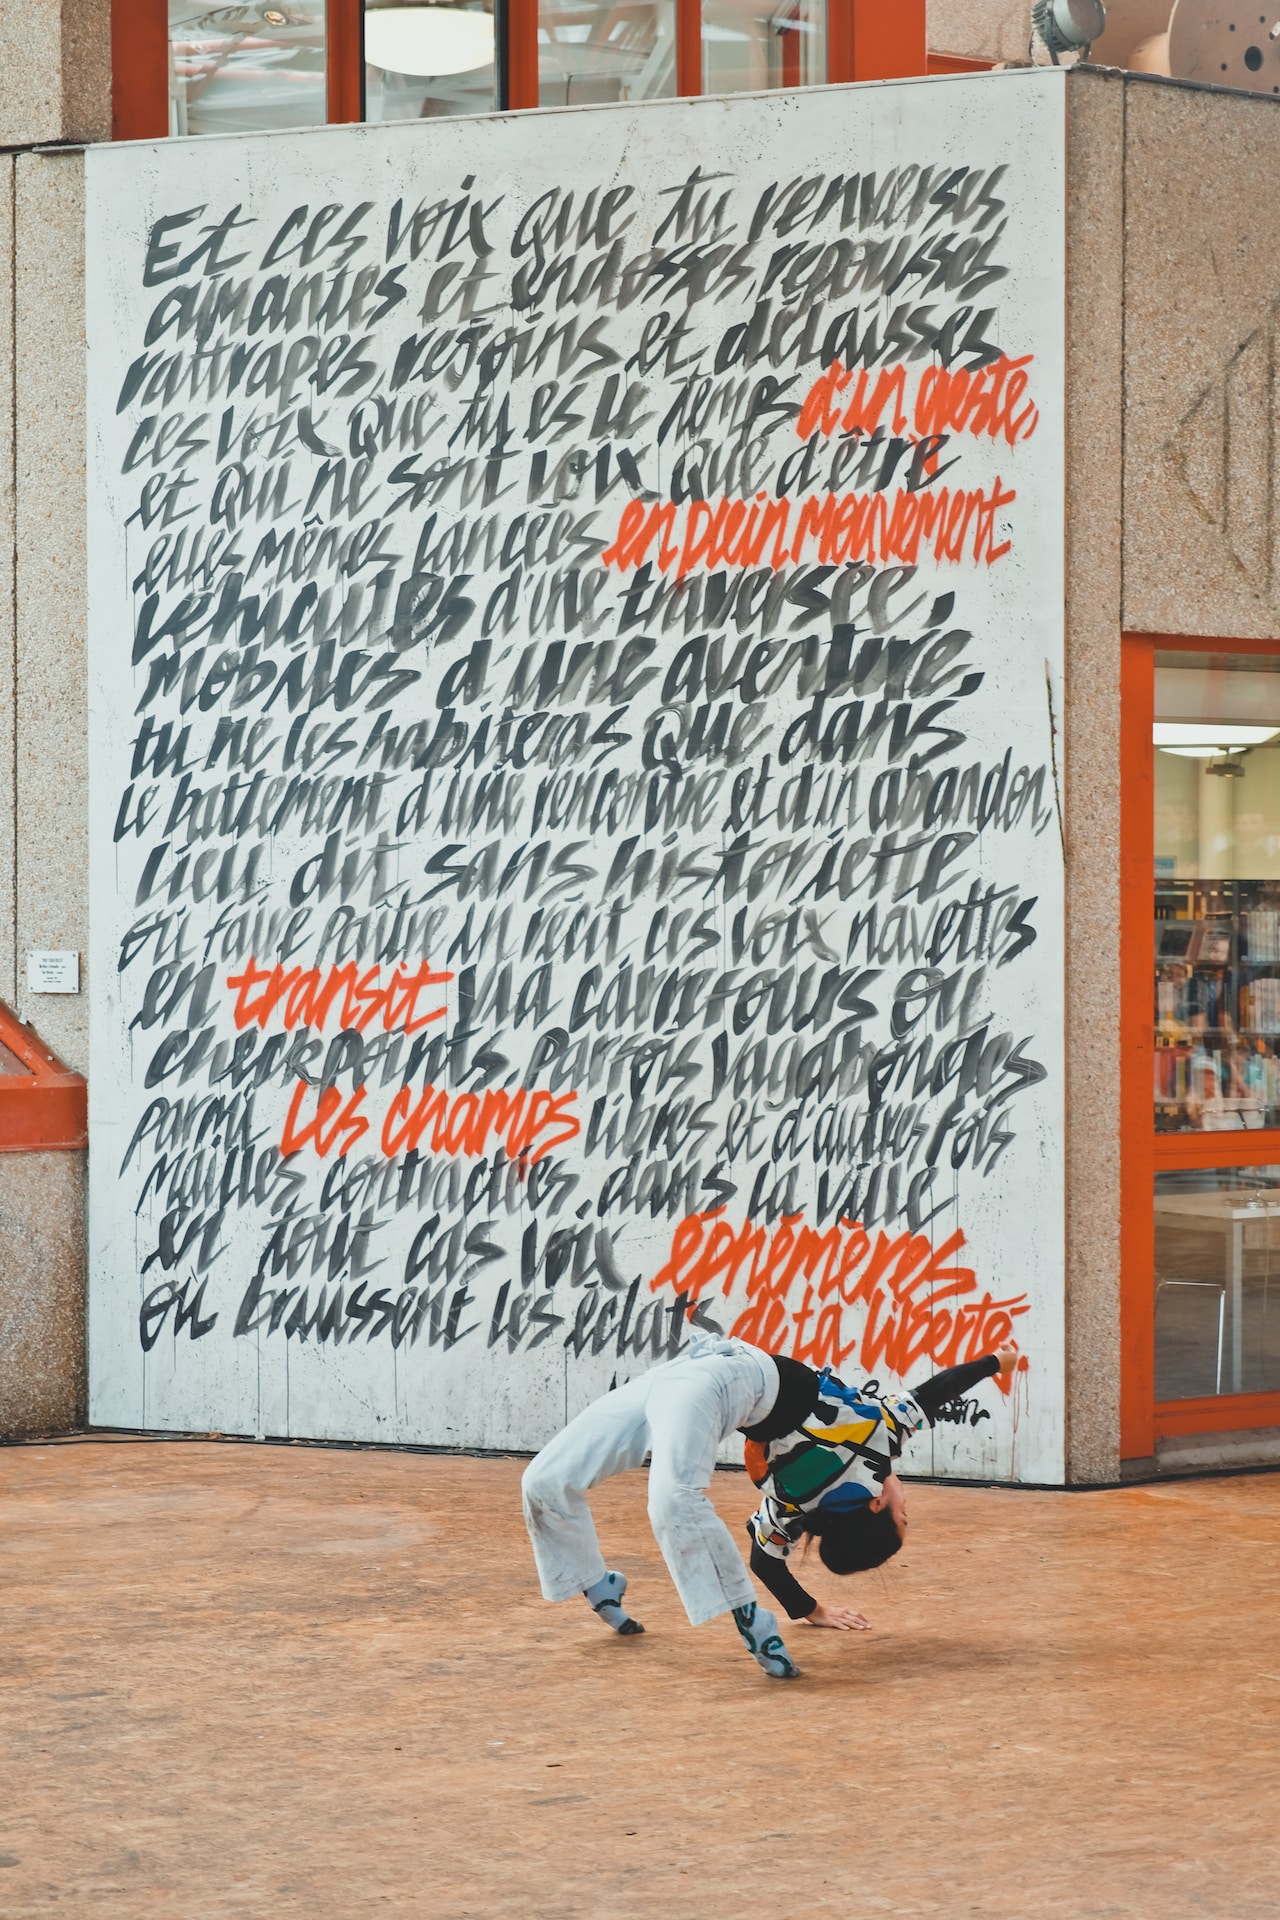 Et ces voix que tu renverses
aimantes et endosses, repousses
rattrapes, rejoins et délaisses
ces voix que tu es le temps d'un geste,
et qui ne sont voix que d'être
elles mêmes lancées en plein mouvement
Véhicules d'une traversée,
mobiles d'une aventure,
tu ne les habiteras que dans
le battement d'une rencontre et d'un abandon,
lieu dit sans historiette
où faire paître un récit ces voix navettes
en transit via carrefours ou
checkpoints, parfois vagabondes
parmi les champs libres et d'autres fois
mailles contractées, dans la ville
en tout cas voix éphémères
où bruissent les éclats de ta liberté.